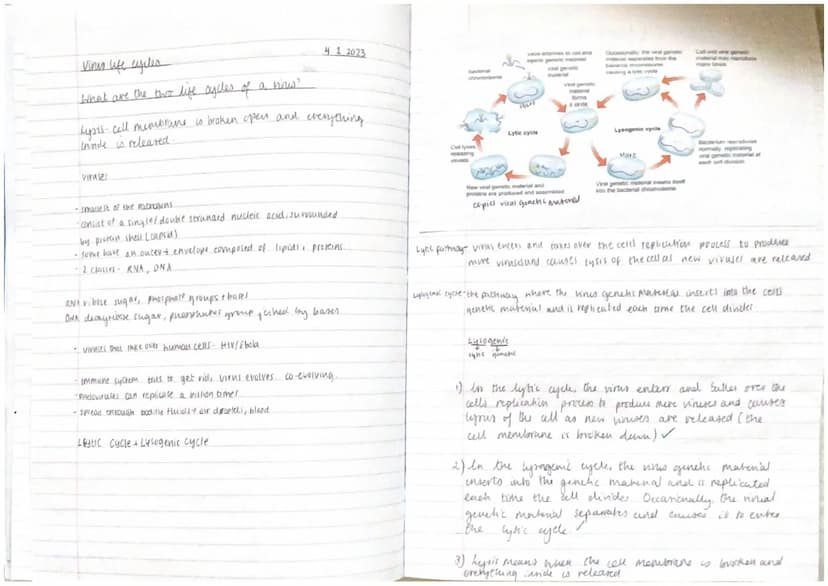 4.1.2023
Virus life cycles
What are the two life cycles of a virus?
Lysis - cell membrane is broken open and everything
inside is released.
Viruses
· smallest of the
· consist of a single/double stranded nucleic acid, surrounded
by protein shell (capsid)
· some have an outer envelope composed of lipids, proteins
- 2 classes - RNA, DNA
RNA ribose sugar, phosphate groups + bases
DNA deoxyribose sugar, phosphates group, joined by bases
· viruses that take over human cells - HIV/Ebola
· immune system tries to get rid, virus evolves. co-evolving.
can replicate a billion times
· spread through bodily fluids + air droplets, blood
Lytic cycle + Lysogenic cycle
bacterial
chromosome
virus attaches to cell and
injects genetic material
viral genetic
material
Viral genetic
material
forms
a circle
Occasionally, the viral genetic
material separates from the
bacterial chromosome
causing a lytic cycle
Cell and viral genetic
material may reproduce
many times
start
Lytic cycle
Lysogenic cycle
Cell lyses
releasing
viruses
Bacterium reproduces
normally, replicating
viral genetic material at
each cell division.
New viral genetic material and
proteins are produced and assembled
Viral genetic material inserts itself
into the bacterial chromosome.
copies viral genetic material
Lytic pathway - virus enters and takes over the cells replication process to produce
more viruses and causes lysis of the cell as new viruses are released
Lysogenic cycle - the pathway where the virus genetic material inserts into the cells
genetic material and is replicated each time the cell divides
Lysogenic
lytic genetic
1) In the lytic cycle, the virus enters and takes over the
cells replication process to produce more viruses and causes
of the cell as new viruses are released (the
cell membrane is broken down) ✓
2) In the lysogenic cycle, the virus genetic material
inserts into the genetic material and is replicated
each time the cell divides. Occasionally, the viral
genetic material separates and causes it to enter
the lytic cycle ✓
3) Lysis means when the cell membrane is broken and
everything inside is released